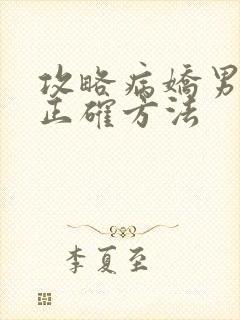 攻略病嬌男
正確方法
李夏至